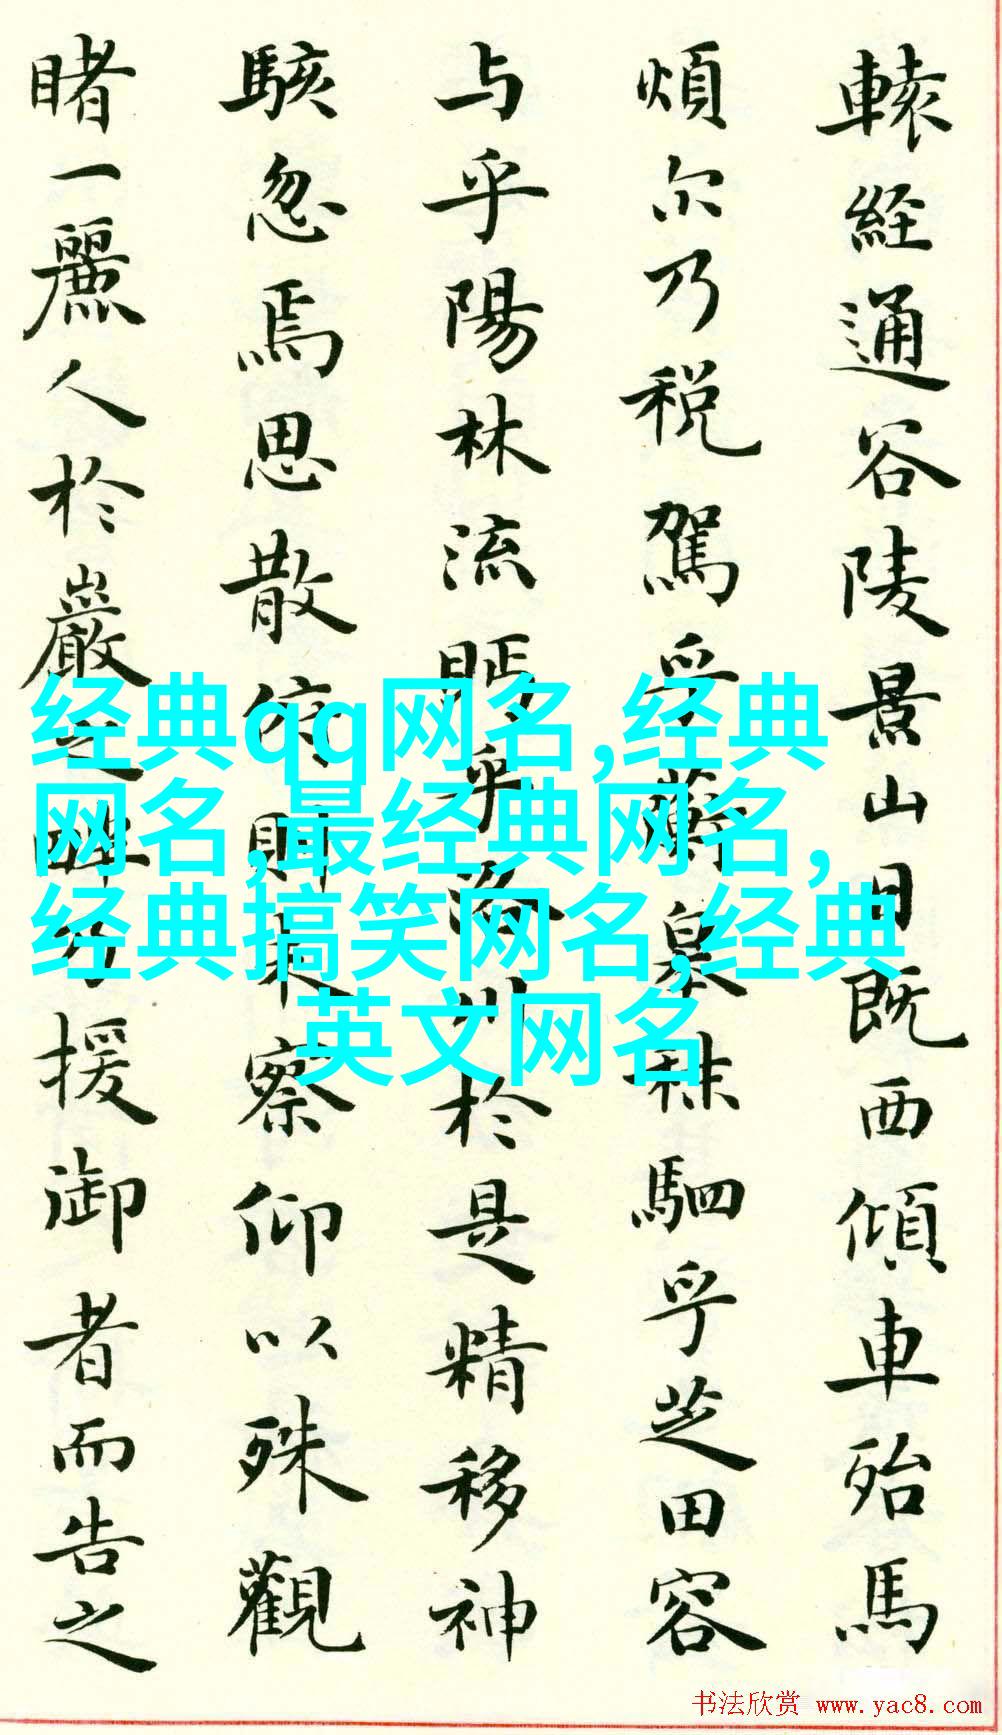 轅経通谷陵景山日既西傾車殆馬
煩尔乃税駕乎蘅皋秣駟乎芝田容
与乎陽林流眄乎洛川於是精移神
駭忽焉思散俯則未察仰以殊觀
睹一麗人於巖之畔乃援御者而告之
经典qq网名,经典
网名,最经典网名,
经典搞笑网名,经典
英文网名
书法欣赏 www.yac8.com